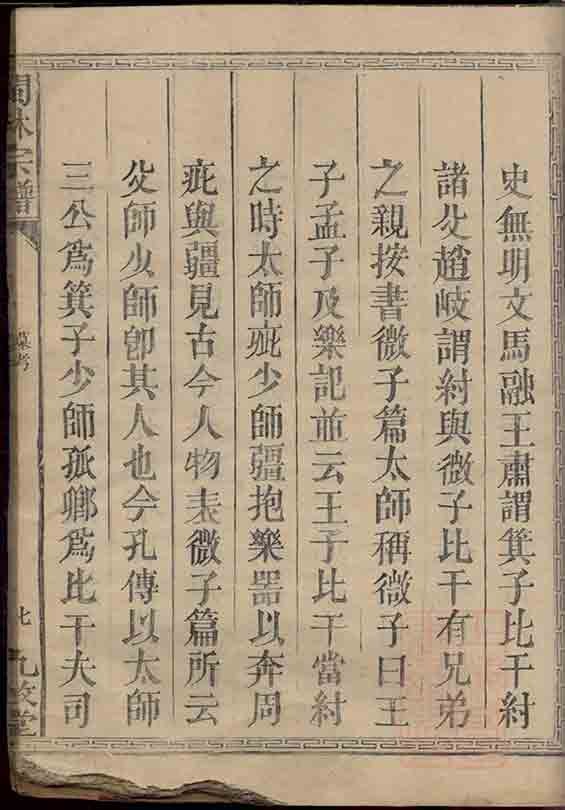 史無明文馬融王肅謂箕子比干紂
諸父趙岐謂紂與微子比干有兄弟
之親按書微子篇太師稱微子曰王
子孟子及樂記並云王子比干當紂
之時太師疵少師疆抱樂器以奔周
疵與疆見古今人物表微子篇所云
父師少師卽其人也今孔傳以太師
三公爲箕子少師孤卿爲比干夫司
林宗譜
墓考
七
九牧堂